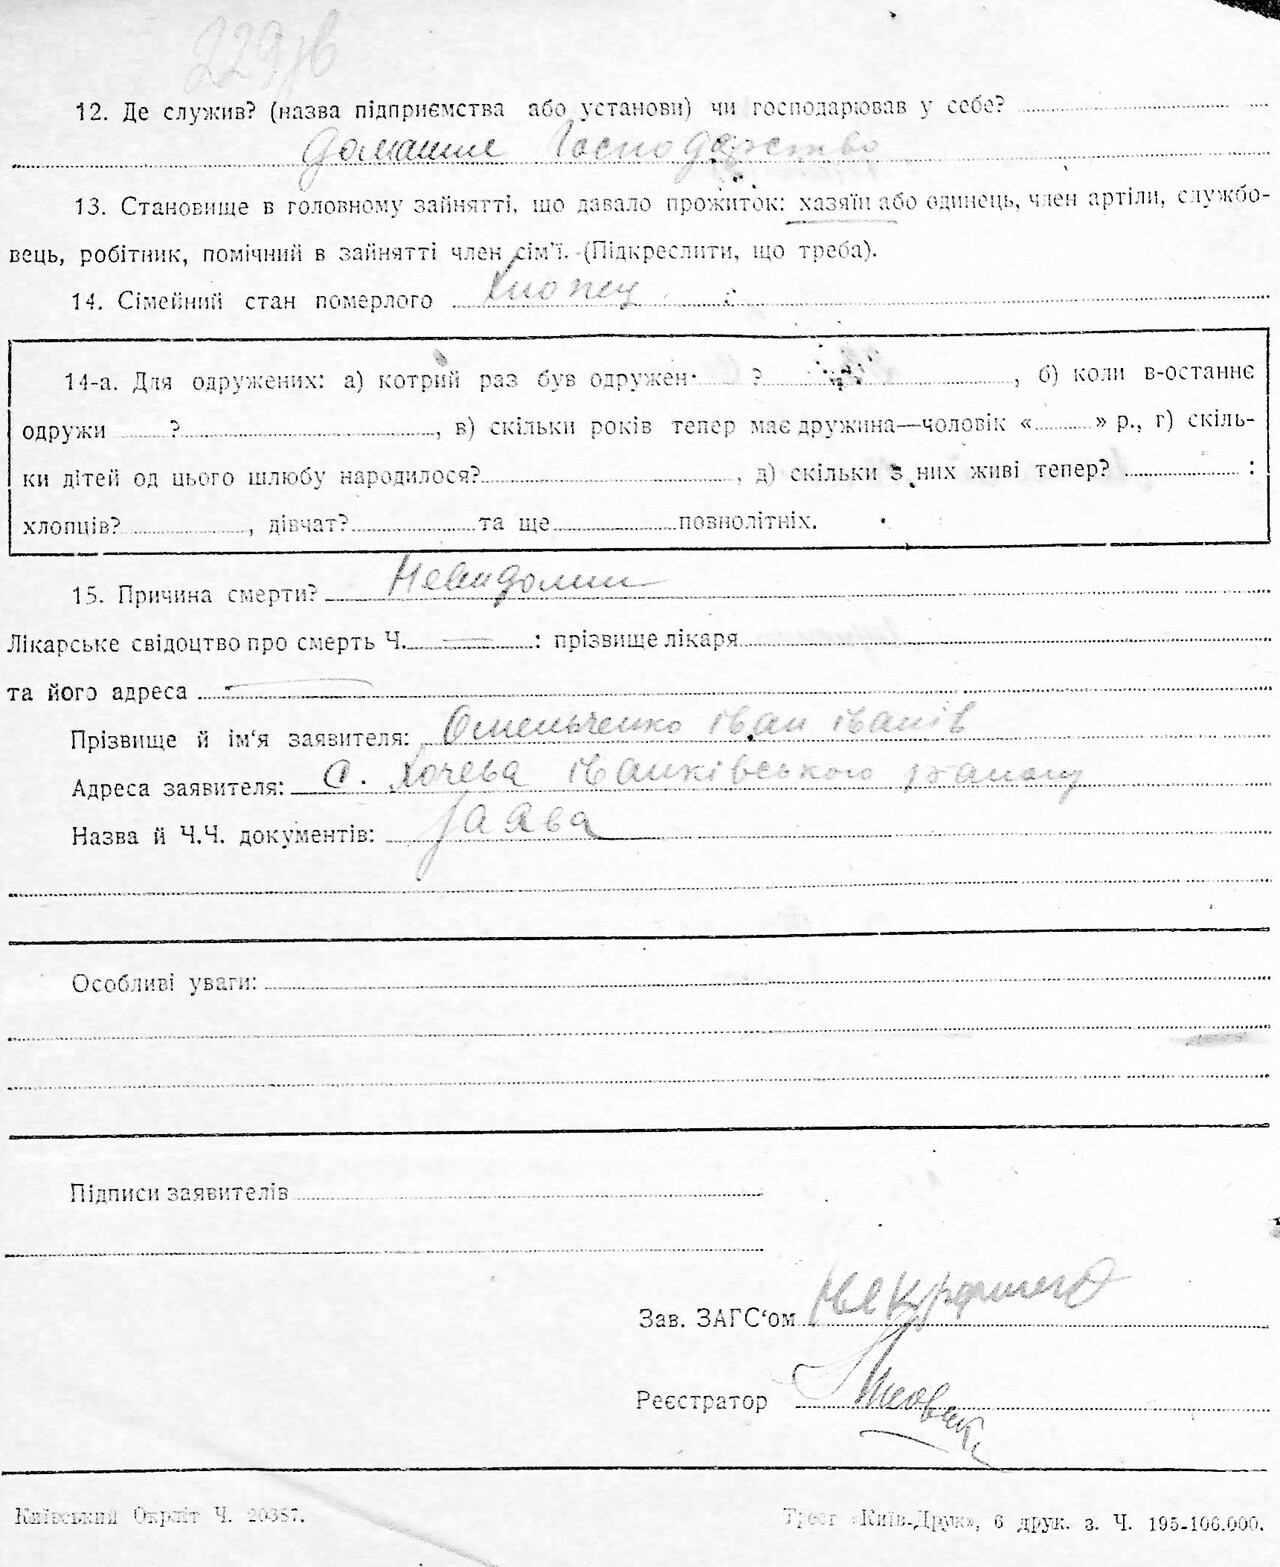 229зв
12. Де служив? (назва підприємства або установи) чи господарював у себе?
Домашне Господарство
13. Становище в головному зайнятті, що давало прожиток: хазяїн або одинець, член артіли, службо-
вець, робітник, помічний в зайнятті член сім'ї. (Підкреслити, що треба).
14. Сімейний стан померлого Хлопец
14-а. Для одружених: а) котрий раз був одружен ?, б) коли в-останнє
одружи ?, в) скільки років тепер має дружина—чоловік « » р., г) скіль-
ки дітей од цього шлюбу народилося?, д) скільки з них живі тепер? :
хлопців?, дівчат? та ще повнолітніх.
15. Причина смерти? Невидомий
Лікарське свідоцтво про смерть Ч. : прізвище лікаря
та його адреса
Прізвище й ім'я заявителя: Омельченко Іван Іванів
Адреса заявителя: с. Хочева Іванківського району
Назва й Ч.Ч. документів: Заява
Особливі уваги:
Підписи заявителів
Зав. ЗАГС'ом
Реєстратор
Київський Окрліт Ч. 20387.
Трест «Київ-Друк», 6 друк. з. Ч. 195-106.000.